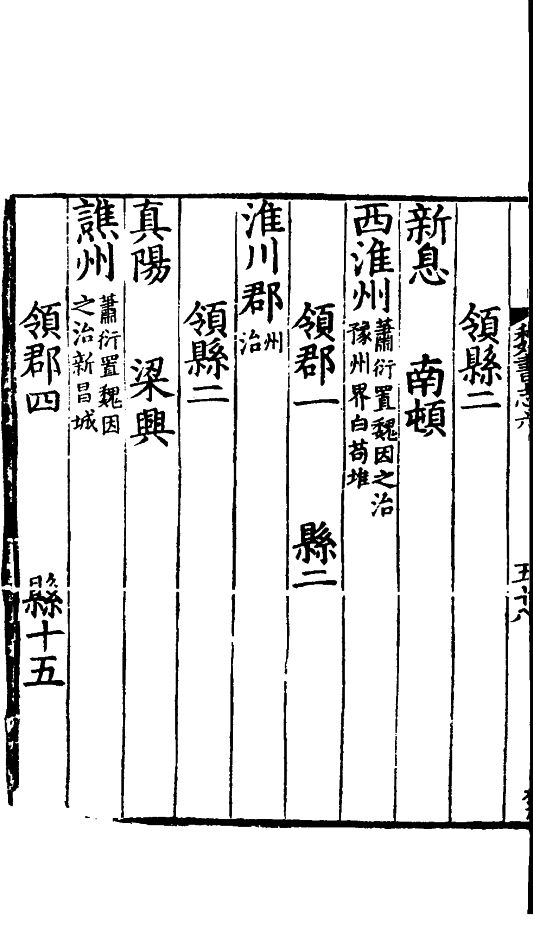 魏書志六
領縣二
新息 南頓
西淮州 蕭衍置魏因之治
豫州界白苟堆
領郡一 縣二
淮川郡 州
治
領縣二
真陽 梁興
譙州 蕭衍置魏因
之治新昌城
領郡四 縣十五